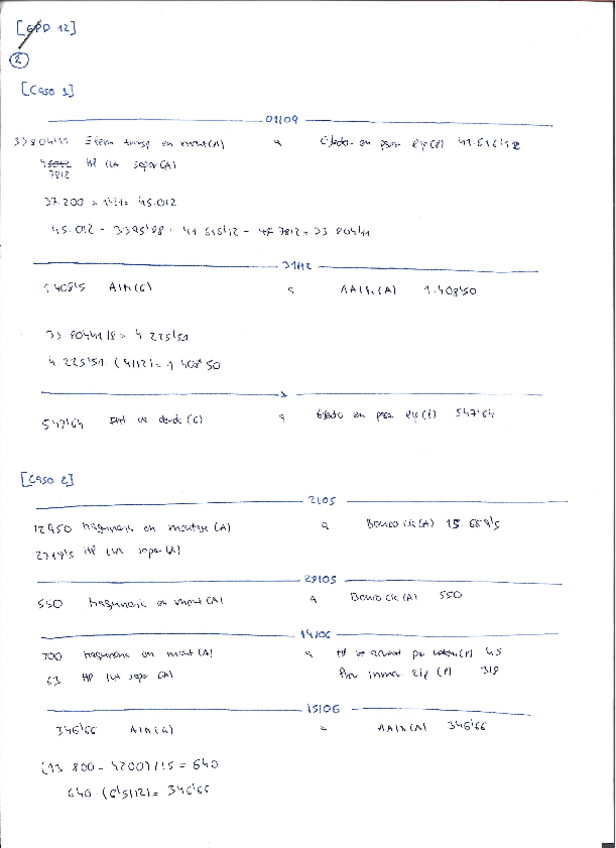 [EPD 12]
2
[Caso 1]
01/09
33804'11 Elem transp en mont (A) a Efectos en pagar l/p (P) 41.616'12
7812 HP IVA sopor (A)
37.200 = 45.012
45.012 - 3395'88 = 41 616'12 - 7812 = 33 804'11
31/12
1408'5 AIM (G) a AAIM (A) 1.408'50
33.804'11/8 = 4 225'51
4.225'51 (4/12) = 1 408'50
547'64 Int de deuda (G) a Efectos en pagar l/p (P) 547'64
[Caso 2]
2/05
12950 Maquinaria en montaje (A) a Banco c/c (A) 15.669'5
2719'5 HP IVA sopor (A)
29/05
550 Maquinaria en mont (A) a Banco c/c (A) 550
14/06
300 Maquinaria en mont (A) a HP (P) 45
63 HP IVA sopor (A) Prov inmov c/p (P) 318
15/06
346'66 AIM (G) a AAIM (A) 346'66
(13 800 - 4200)/15 = 640
640 (6'5/12) = 346'66